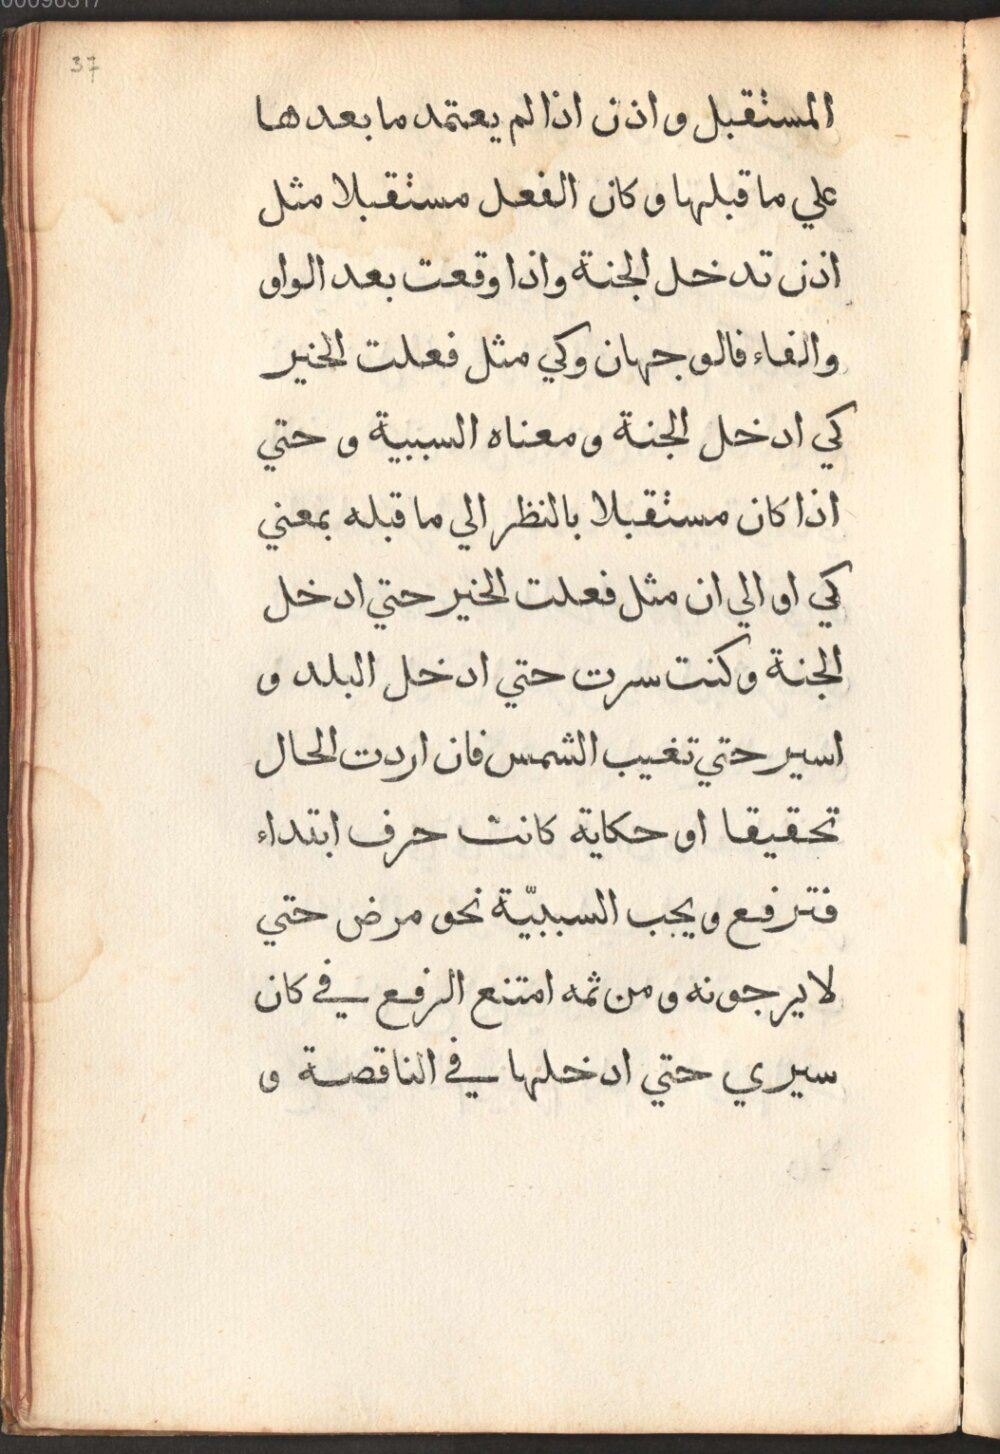 00096317
37
المستقبل واذن اذا لم يعتمد ما بعدها
علي ما قبلها وكان الفعل مستقبلا مثل
اذن تدخل الجنة واذا وقعت بعد الواو
والفاء فالوجهان وكي مثل فعلت الخير
كي ادخل الجنة ومعناه السببية وحتي
اذا كان مستقبلا بالنظر الي ما قبله بمعني
كي او الي ان مثل فعلت الخير حتي ادخل
الجنة وكنت سرت حتي ادخل البلد و
اسير حتي تغيب الشمس فان اردت الحال
تحقيقا او حكاية كانت حرف ابتداء
فترفع ويجب السببيّة نحو مرض حتي
لا يرجونه ومن ثمه امتنع الرفع في كان
سيري حتي ادخلها في الناقصة و